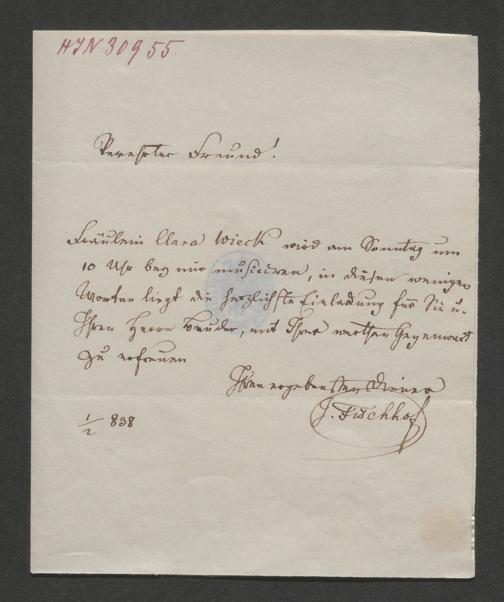 HIN 30955.
Verehrter Freund!
Fräulein Clara Wieck wird am Sonntag um
10 Uhr bey mir musiciren, in diesen wenigen
Worten liegt die herzlichste Einladung für Sie u.
Ihren Herrn Bruder, mit Ihrer werthen Gegenwart
zu erfreuen
Ihren ergebensten Diener
J. Fischhof
1/2 838